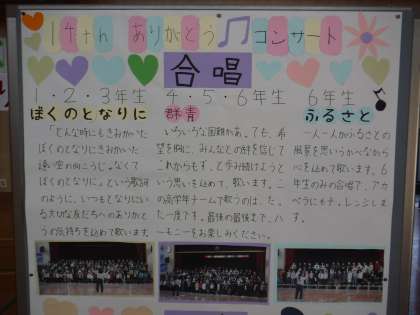 14th ありがとう コンサート
合唱
1・2・3年生
ぼくのとなりに
「どんな時にもきみがいた
ぼくのとなりにきみがいた
遠い空の向こうじゃなくて
ぼくのとなりに。」という歌詞
のように、いつもとなりにい
る大切な友だちへのありがと
うの気持ちを込めて歌います。
4・5・6年生
群青
いろいろな困難があっても、希
望を胸に、みんなとの絆を信じて
これからもずっと歩み続けようと
いう思いを込めて、歌います。こ
の高学年チームで歌うのは、たっ
た一度です。最後の最後まで、ハ
ーモニーをお楽しみください。
6年生
ふるさと
一人一人がふるさとの
風景を思いうかべながら
心を込めて歌います。6
年生のみの合唱で、アカ
ペラにもチャレンジしま
す。